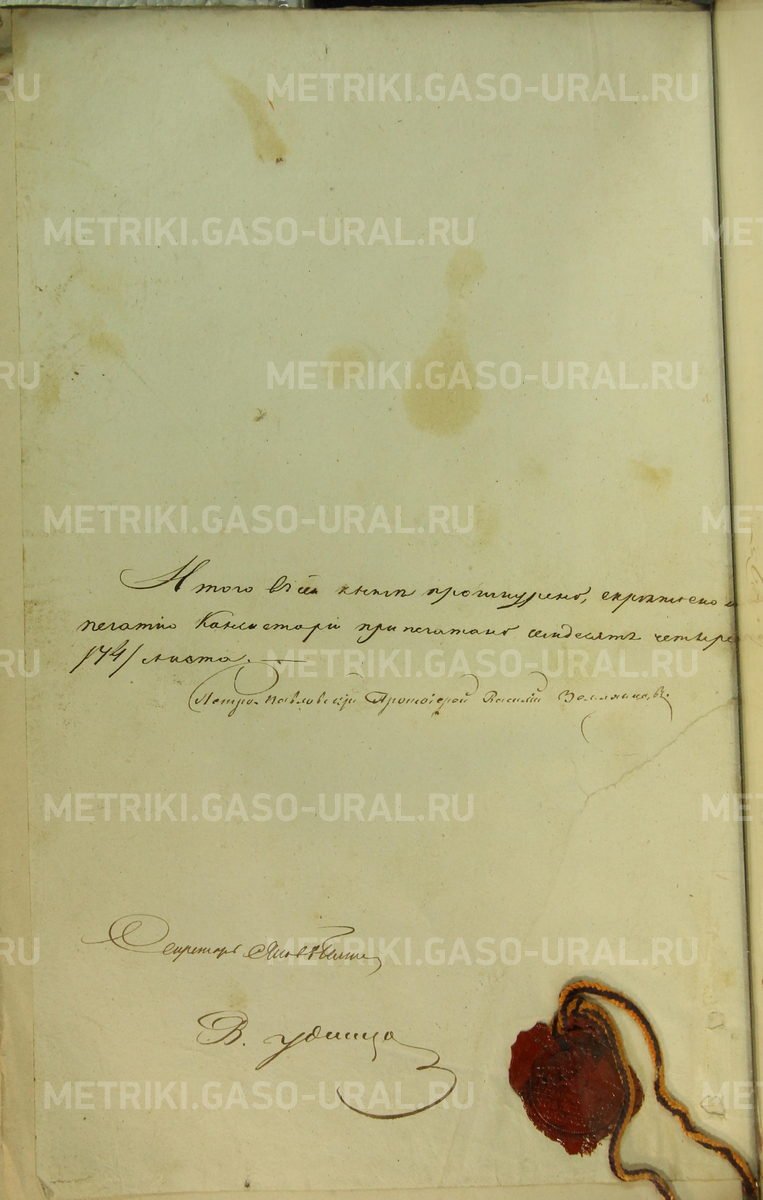 METRIKI.GASO-URAL.RU
METRIKI.GASO-URAL.RU
METRIKI.GASO-URAL.RU
METRIKI.GASO-URAL.RU
Итого въ сей книгѣ прошнурено, скрѣплено и
печатію Консисторіи припечатано семдесятъ четыре
/74/ листа.
Петро-Павловскій Протоіерей Василій
METRIKI.GASO-URAL.RU
Секретарь
METRIKI.GASO-URAL.RU
В.
METRIKI.GASO-URAL.RU